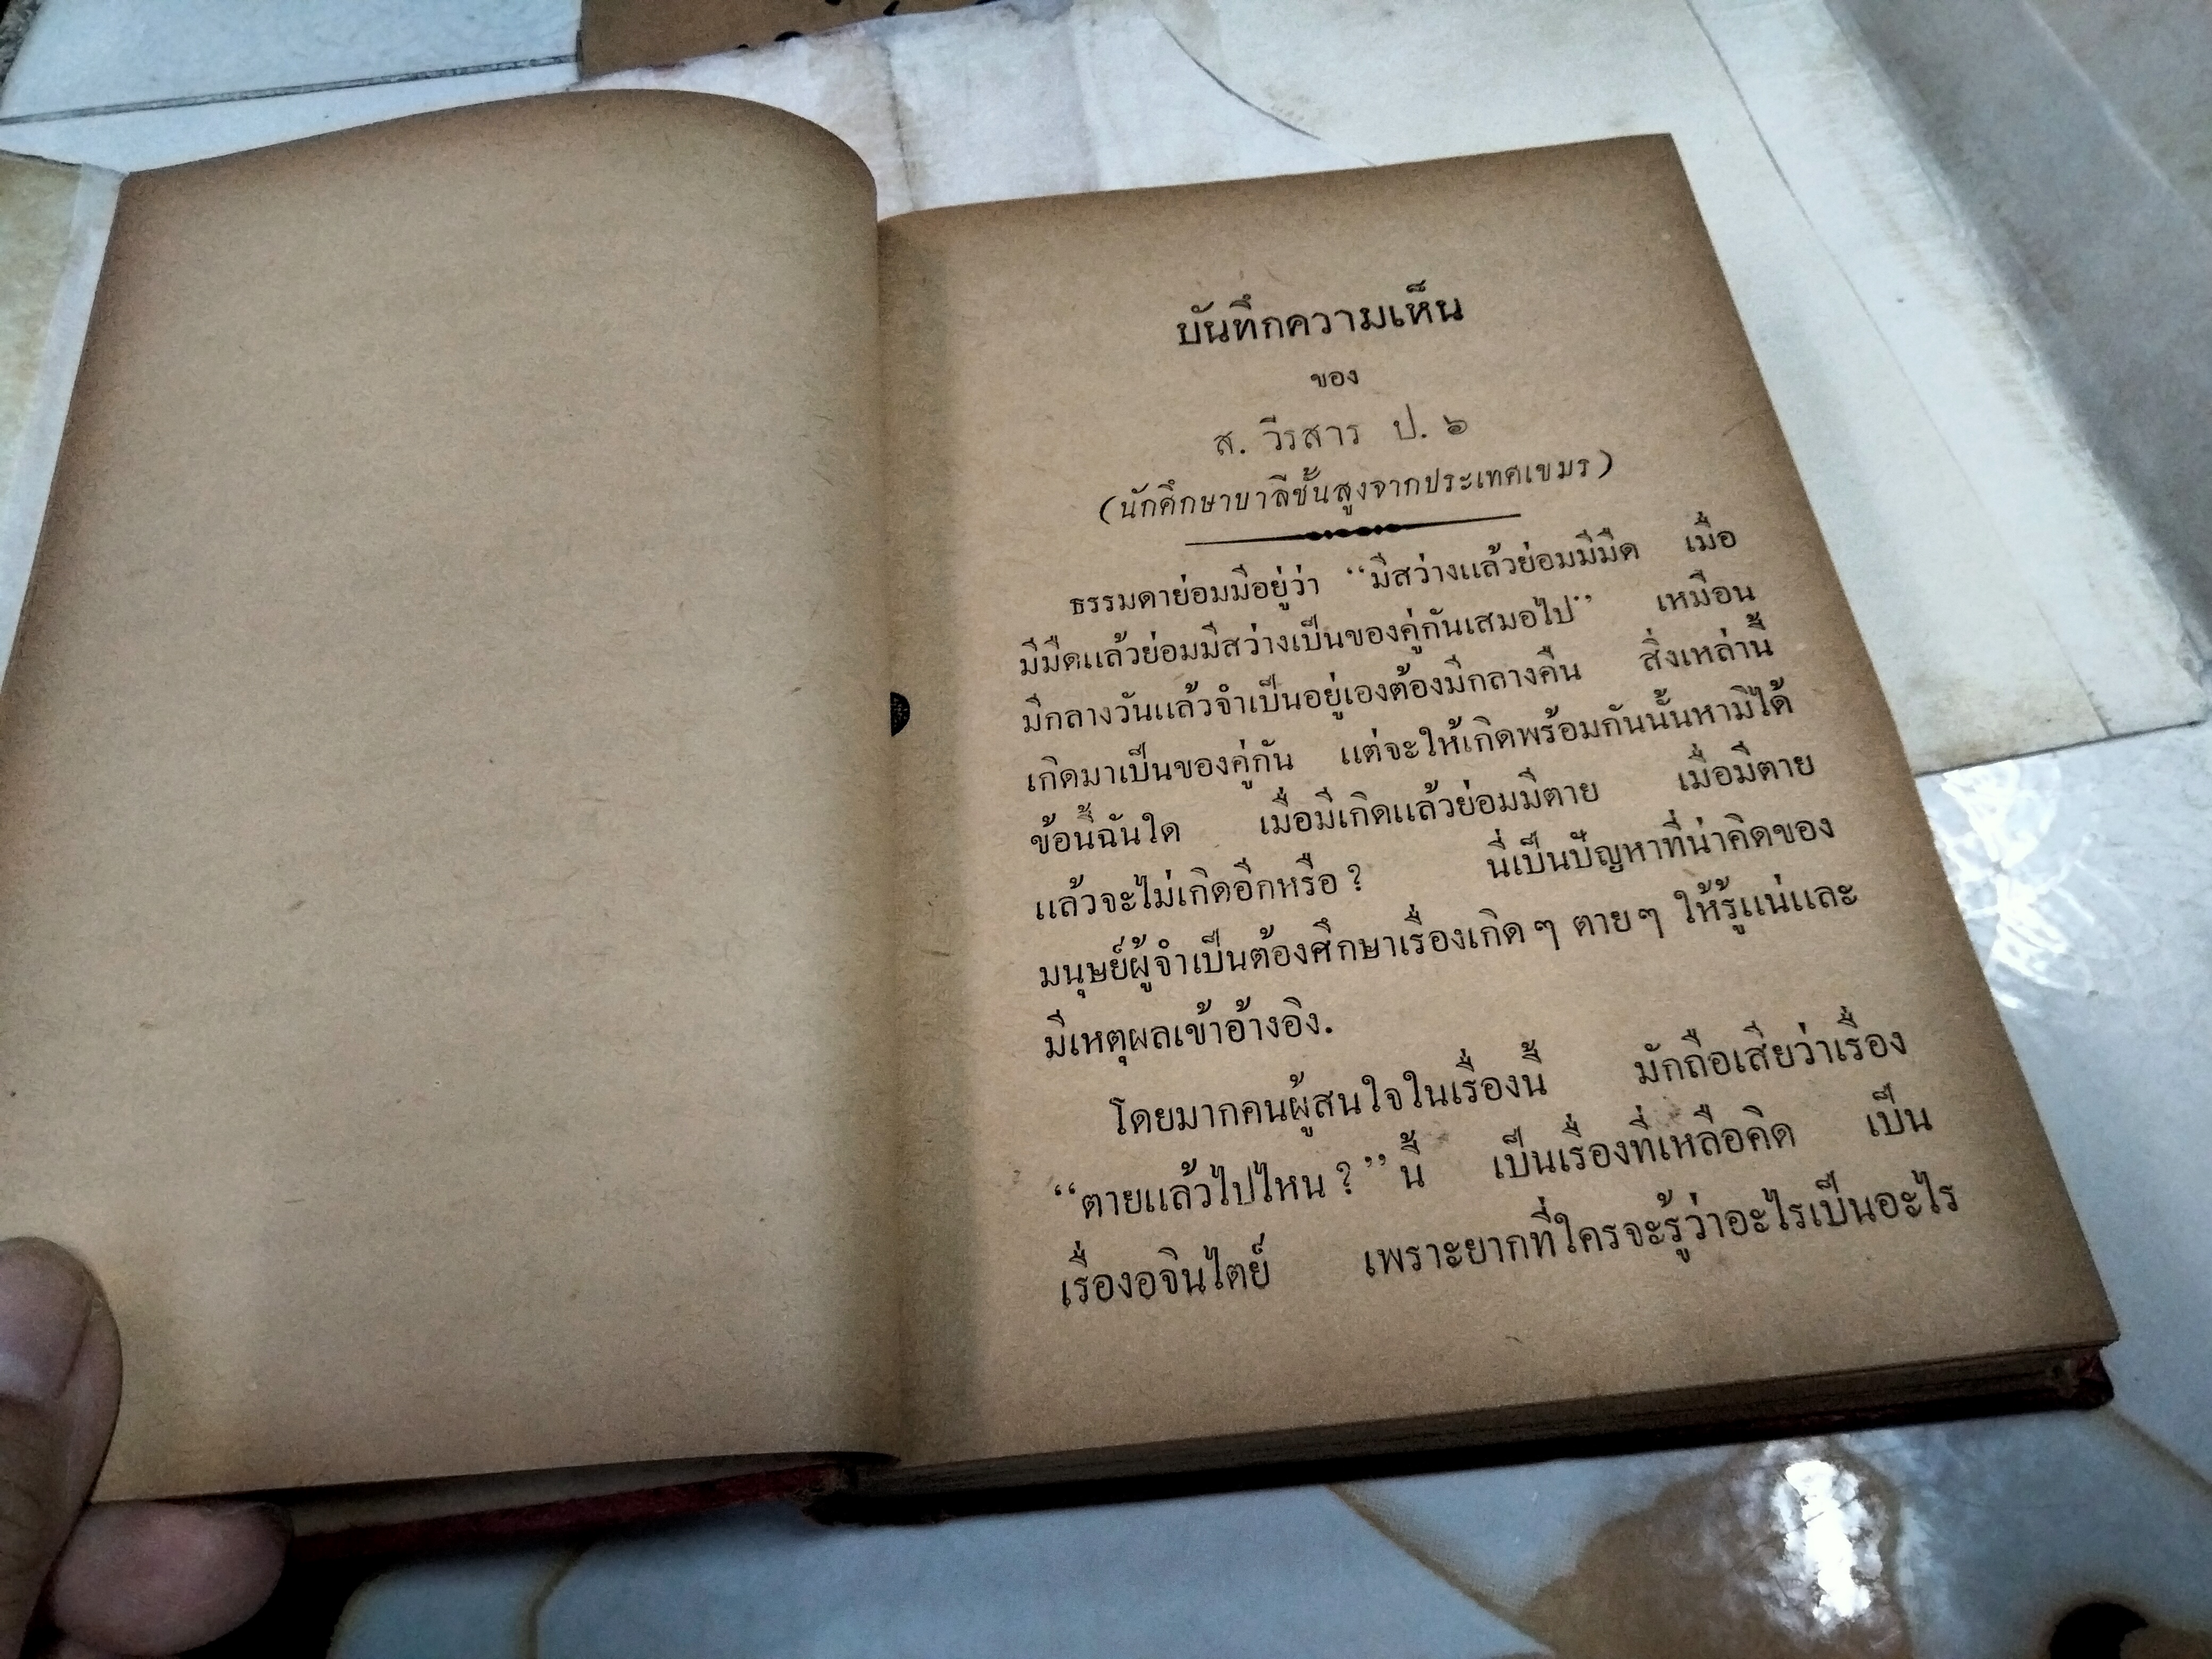 บันทึกความเห็น
ของ
ส. วีรสาร ป. ๖
(นักศึกษาบาลีชั้นสูงจากประเทศเขมร)
ธรรมดาย่อมมีอยู่ว่า “มีสว่างแล้วย่อมมีมืด เมื่อ
มีมืดแล้วย่อมมีสว่างเป็นของคู่กันเสมอไป” เหมือน
มีกลางวันแล้วจำเป็นอยู่เองต้องมีกลางคืน สิ่งเหล่านี้
เกิดมาเป็นของคู่กัน แต่จะให้เกิดพร้อมกันนั้นหามิได้
ข้อนี้ฉันใด เมื่อมีเกิดแล้วย่อมมีตาย เมื่อมีตาย
แล้วจะไม่เกิดอีกหรือ ? นี่เป็นปัญหาที่น่าคิดของ
มนุษย์ผู้จำเป็นต้องศึกษาเรื่องเกิด ๆ ตาย ๆ ให้รู้แน่และ
มีเหตุผลเข้าอ้างอิง.
โดยมากคนผู้สนใจในเรื่องนี้ มักถือเสียว่าเรื่อง
“ตายแล้วไปไหน ? ” นี้ เป็นเรื่องที่เหลือคิด เป็น
เรื่องอจินไตย์ เพราะยากที่ใครจะรู้ว่าอะไรเป็นอะไร